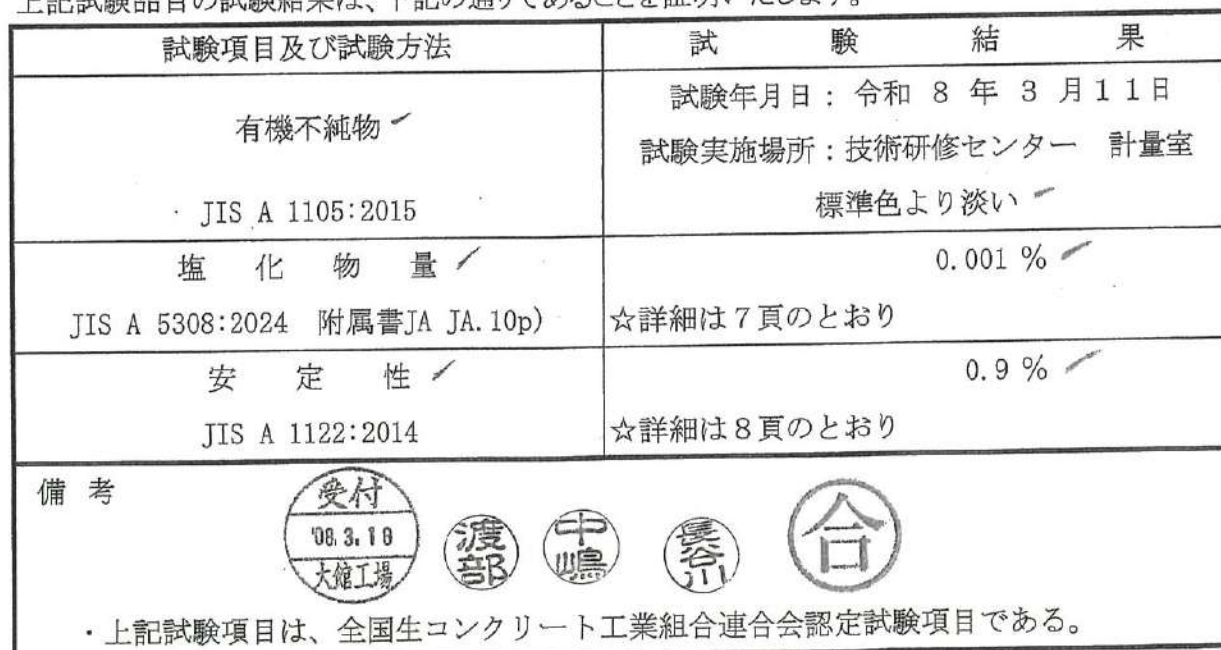 上記試験品目の試験結果は、下記の通りであることを証明いたします。
試験項目及び試験方法
試験結果
有機不純物
JIS A 1105:2015
試験年月日：令和 8 年 3 月11日
試験実施場所：技術研修センター 計量室
標準色より淡い
塩化物量
JIS A 5308:2024 附属書JA JA.10p)
0.001 %
☆詳細は7頁のとおり
安定性
JIS A 1122:2014
0.9 %
☆詳細は8頁のとおり
備考
受付
'08.3.18
大館工場
渡部
中嶋
長谷川
合
・上記試験項目は、全国生コンクリート工業組合連合会認定試験項目である。